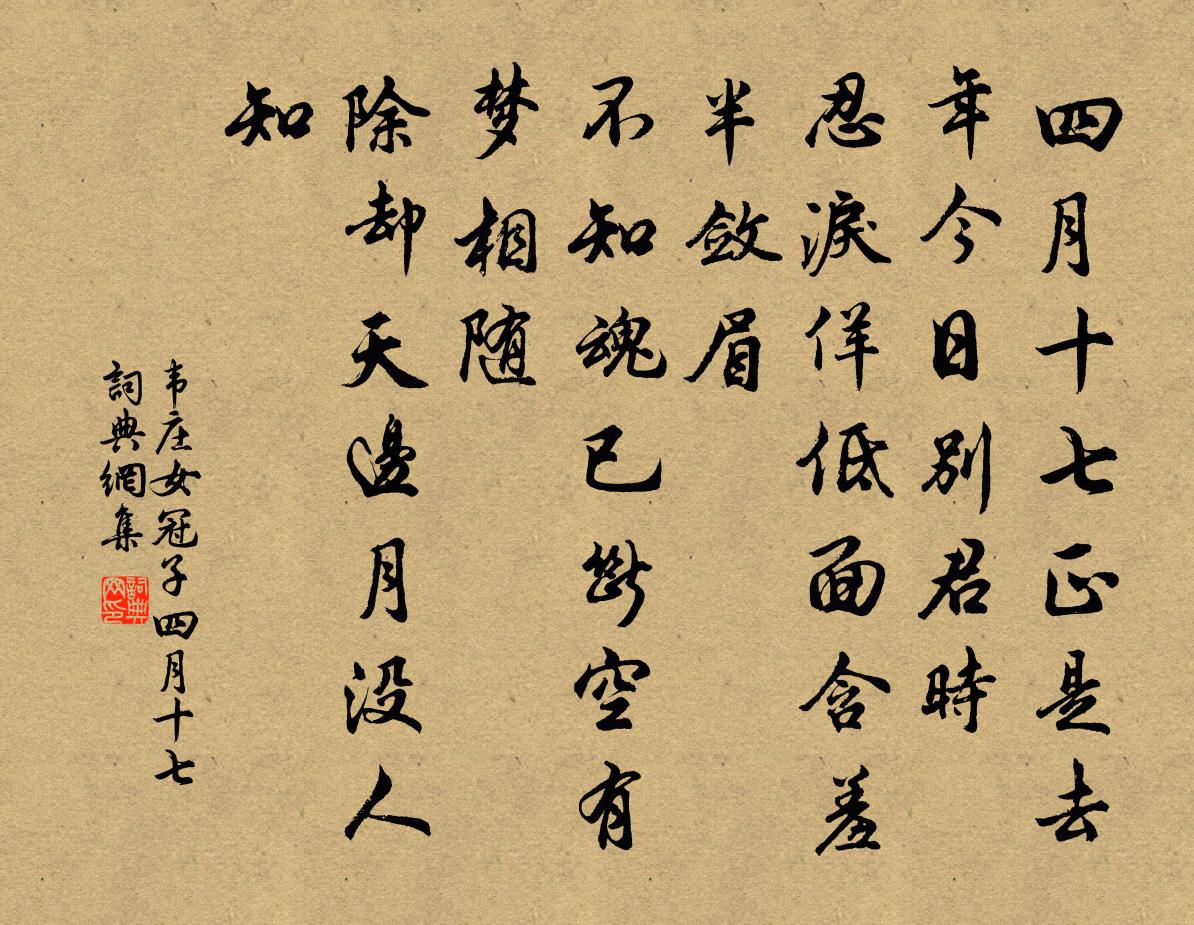 四月十七正是去
年今日别君時
忍淚佯低面含羞
半斂眉
不知魂已斷空有
梦相随
除却天邊月没人
知
韦庄女冠子四月十七
詞典網集
詞典網印